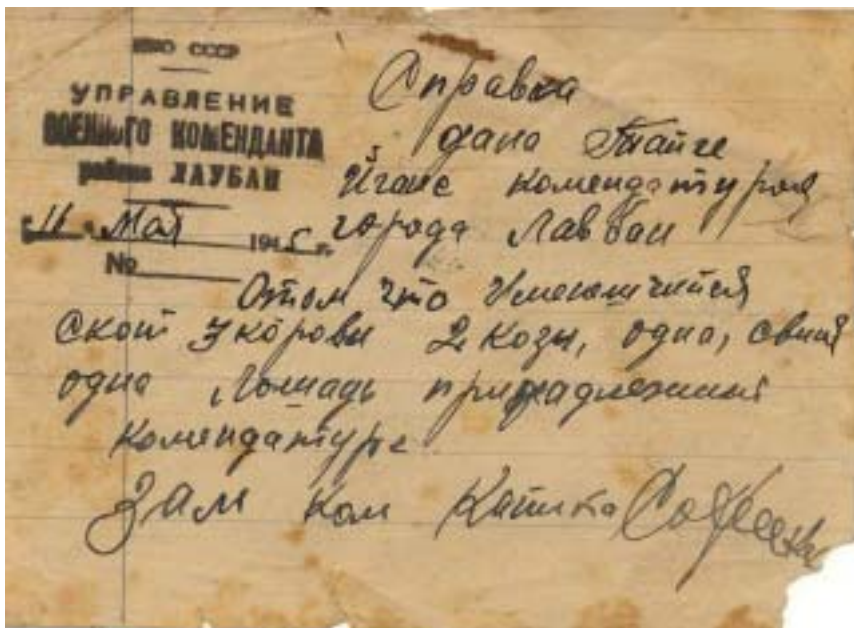 НКО СССР
УПРАВЛЕНИЕ
ВОЕННОГО КОМЕНДАНТА
района ЛАУБАН
"11" Мая 1945 г.
№
Справка
дана
комендатурой
города Лаубан
Отом что Имеющийся
Скот 3 коровы 2 козы, одна, свиня
одна Лошадь принадлежит
Комендатуре
Зам Ком